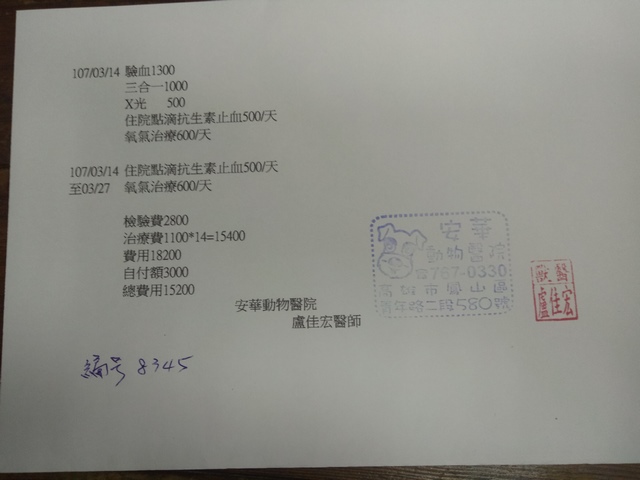 107/03/14 驗血1300
三合一1000
X光 500
住院點滴抗生素止血500/天
氧氣治療600/天
107/03/14 住院點滴抗生素止血500/天
至03/27 氧氣治療600/天
檢驗費2800
治療費1100*14=15400
費用18200
自付額3000
總費用15200
安華動物醫院
盧佳宏醫師
安華
動物醫院
☎767-0330
高雄市鳳山區
青年路二段580號
獸醫
盧佳宏
編号 8345